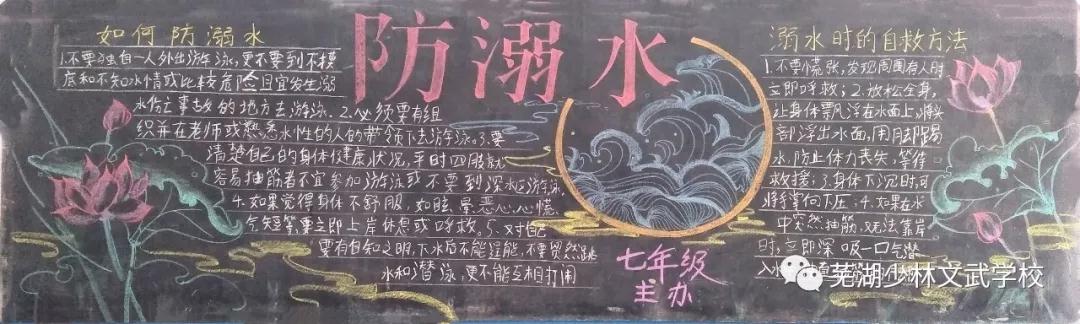 防溺水
如何防溺水
1.不要独自一人外出游泳,更不要到不摸
底和不知水情或比较危险且宜发生溺
水伤亡事故的地方去游泳。2.必须要有组
织并在老师或熟悉水性的人的带领下去游泳。3.要
清楚自己的身体健康状况,平时四肢就
容易抽筋者不宜参加游泳或不要到深水区游泳。
4.如果觉得身体不舒服,如眩晕、恶心、心慌、
气短等,要立即上岸休息或呼救。5.对自己
要有自知之明,下水后不能逞能,不要贸然跳
水和潜泳,更不能互相打闹
七年级
主办
溺水时的自救方法
1.不要慌张,发现周围有人时
立即呼救;2.放松全身,
让身体飘浮在水面上,将头
部浮出水面,用脚踢
水,防止体力丧失,等待
救援;3.身体下沉时,可
将手掌向下压;4.如果在水
中突然抽筋,又无法靠岸
时,立即深吸一口气潜
入水
芜湖少林文武学校